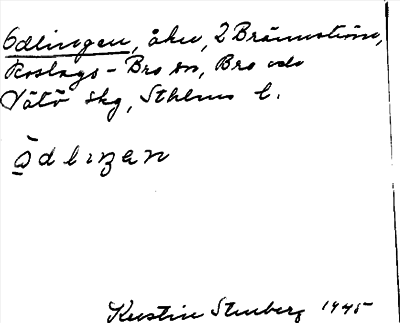 Odlingen, åker, 2 Brännström,
Roslags-Bro sn, Bro och
Vätö skg, Sthlms l.
ö̲dlıŋan
Kerstin Stenberg 1945